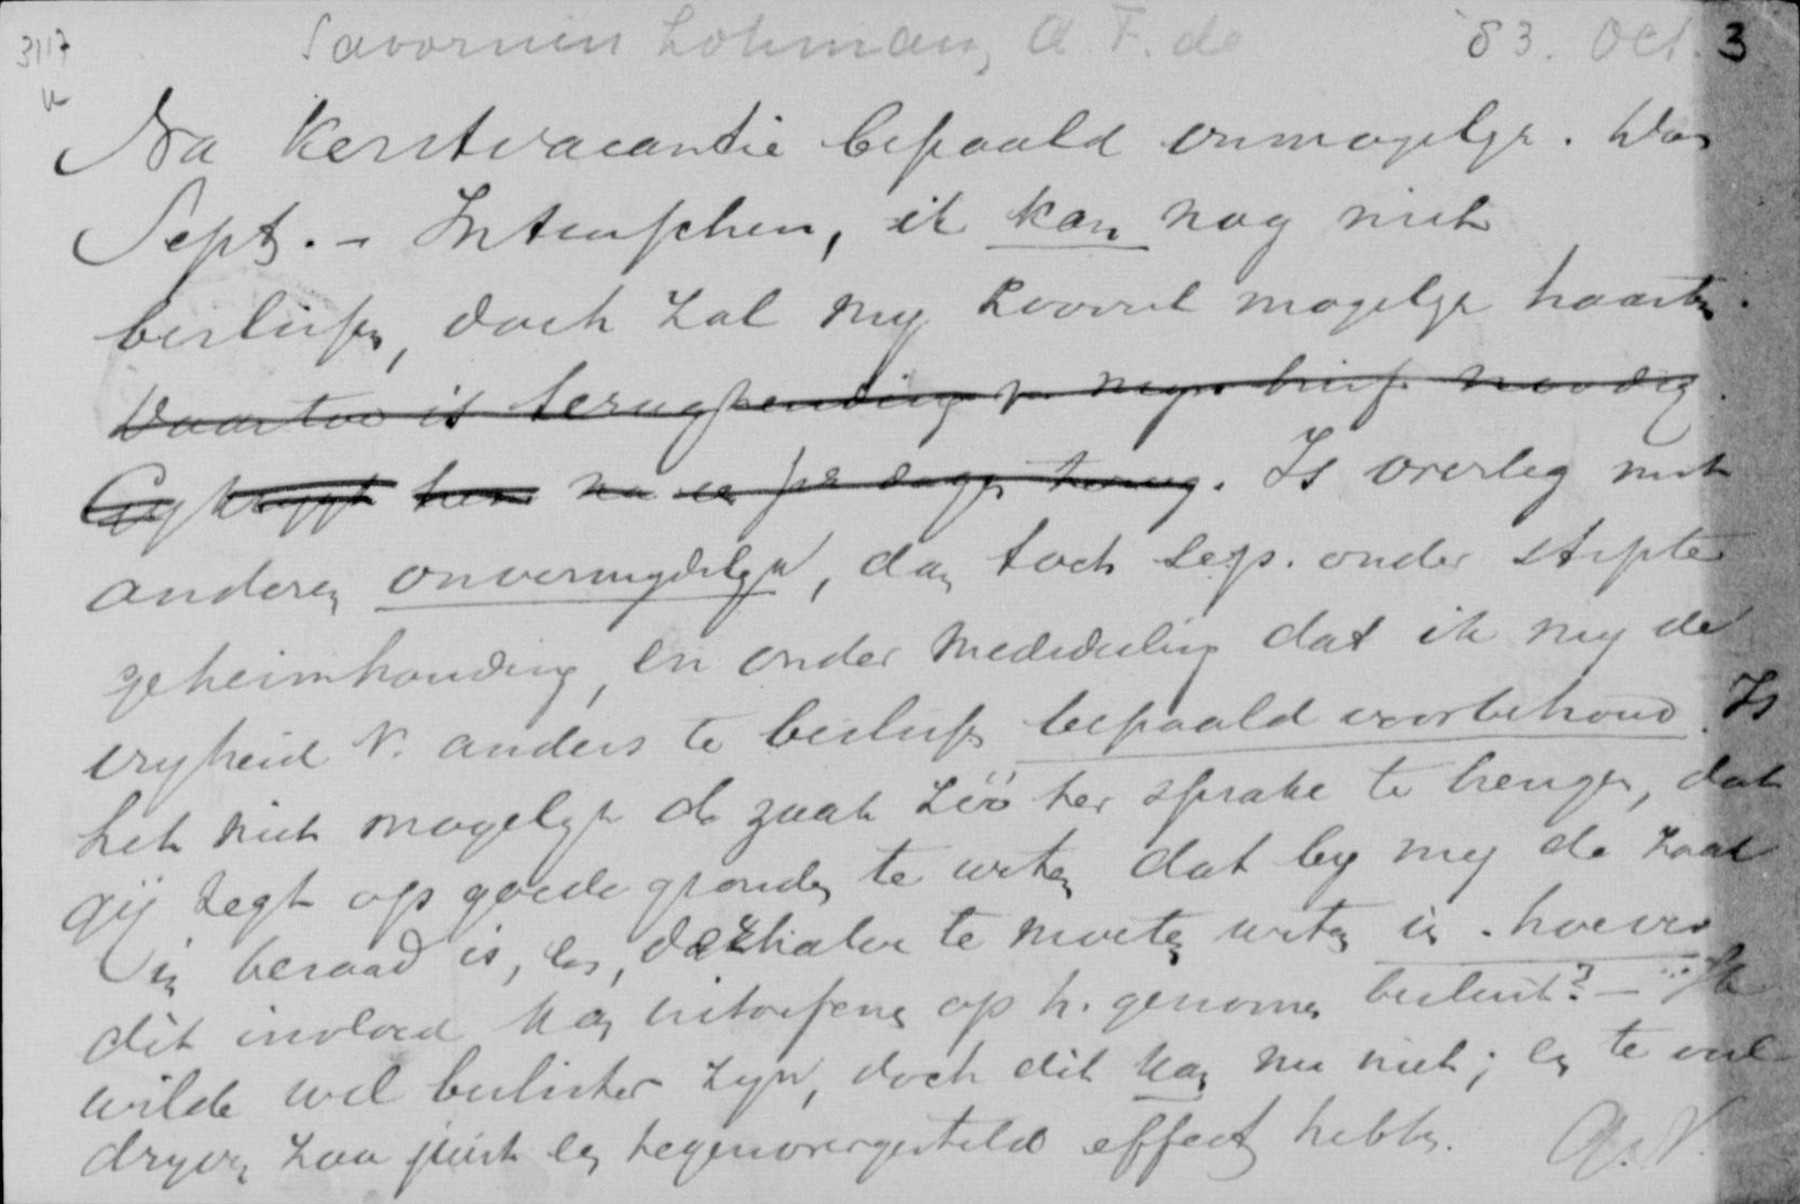 3117
Savornin Lohman, A. F. de '83. Oct. 3
Na Kerstvacantie bepaald onmogelyk. Wèl
Sept. - Intusschen, ik kan nog niet
beslissen, doch zal my zooveel mogelyk haasten.
Waartoe is terugzending v. myn brief noodig.
Gy krygt hem na een pr dagen terug. Is overleg met
anderen onvermydelyk, dan toch s.v.p. onder stipte
geheimhouding, en onder mededeeling dat ik my de
vryheid v. anders te beslissen bepaald voorbehoud. Is
het niet mogelyk de zaak zóó ter sprake te brengen, dat
gij zegt op goede gronden te weten dat by my de zaak
in beraad is, en, derhalve te moeten weten in hoever
dit invloed kan uitoefenen op h. genomen besluit? - Ik
wilde wel beslister zyn, doch dit kan nu niet; en te veel
dryven zou juist een tegenovergesteld effect hebben.